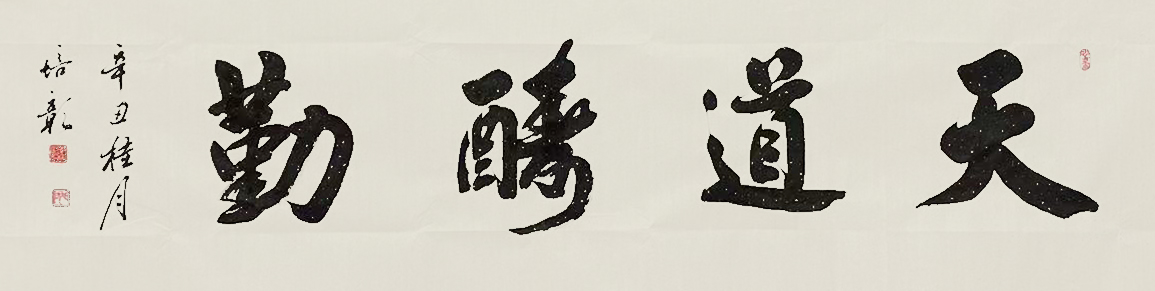 天道酬勤
辛丑桂月
培彰